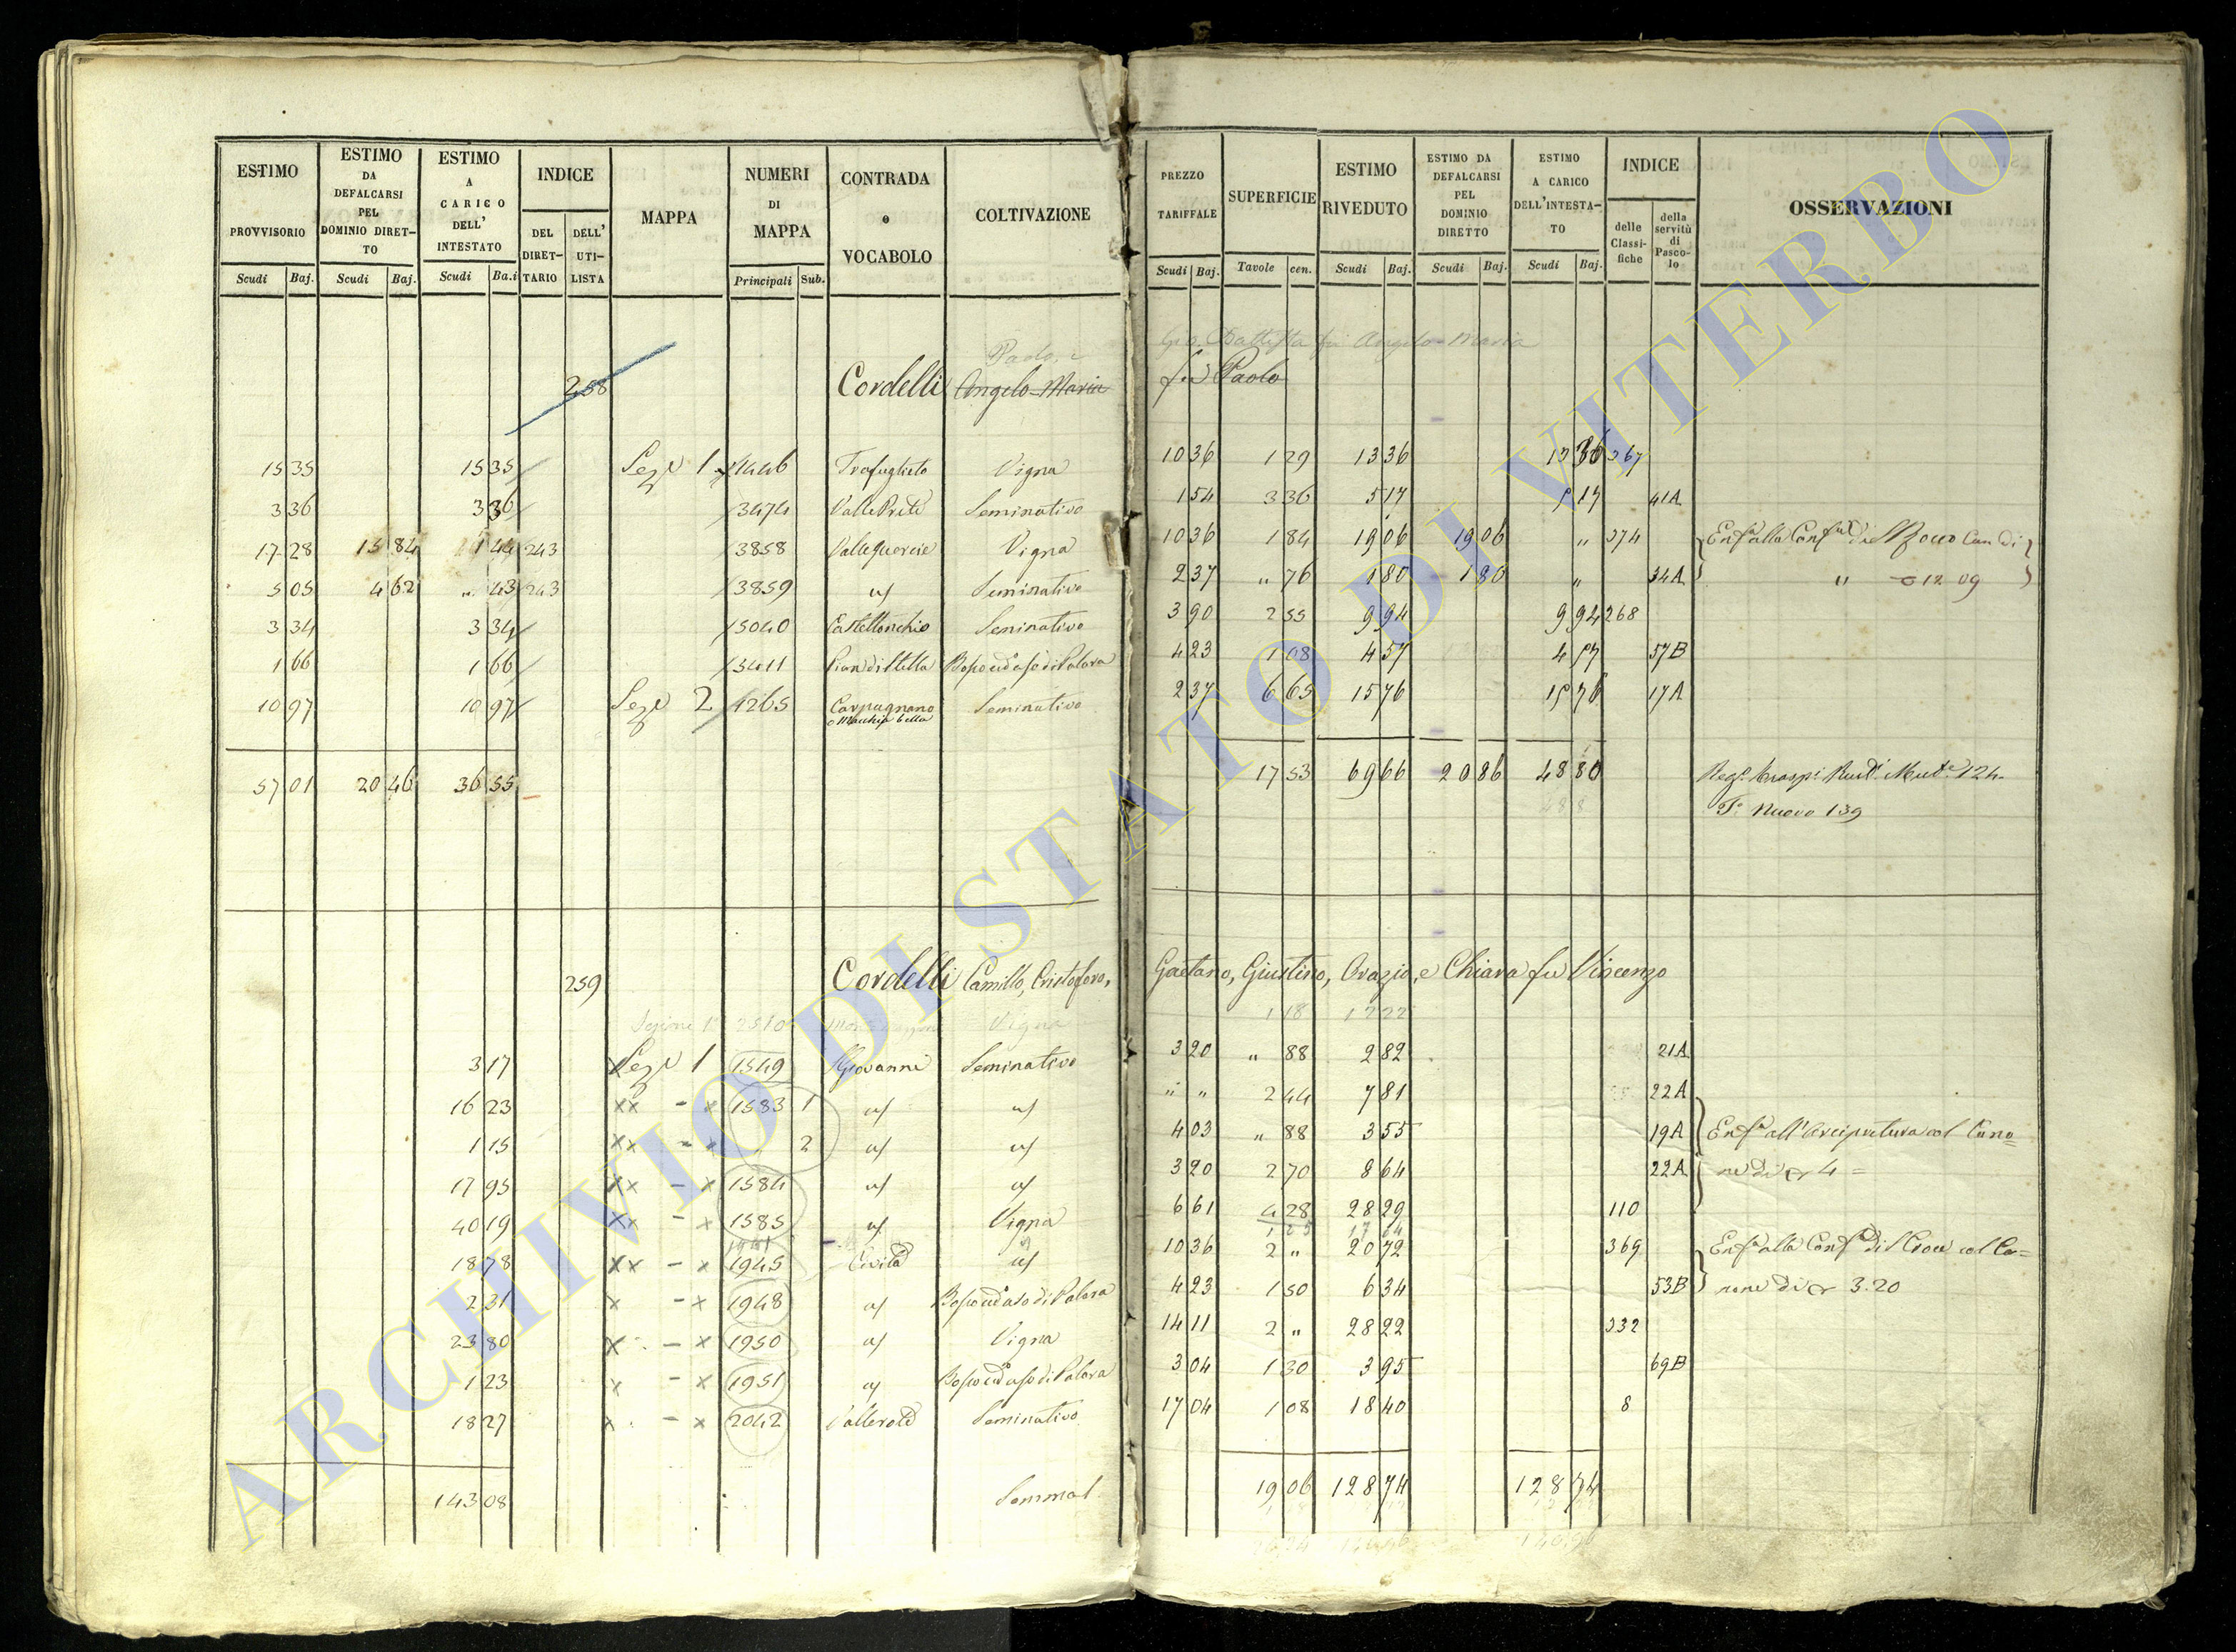 ESTIMO PROVVISORIO
ESTIMO DA DEFALCARSI PEL DOMINIO DIRET-TO
ESTIMO A CARICO DELL' INTESTATO
INDICE
DEL DIRET-TARIO
DELL' UTI-LISTA
MAPPA
NUMERI DI MAPPA
CONTRADA o VOCABOLO
COLTIVAZIONE
Scudi Baj. Scudi Baj. Scudi Ba.i Principali Sub.
PREZZO TARIFFALE
SUPERFICIE
ESTIMO RIVEDUTO
ESTIMO DA DEFALCARSI PEL DOMINIO DIRETTO
ESTIMO A CARICO DELL'INTESTA-TO
INDICE
delle Classi-fiche
della servitù di Pasco-lo
OSSERVAZIONI
Scudi Baj. Tavole cen. Scudi Baj. Scudi Baj. Scudi Baj.
Paolo, e Gio. Battista fu Angelo Maria
258 Cordelli Angelo-Maria fu Paolo
15 35 15 35 Sez.e 1 1446 Vigna 10 36 1 29 13 36 13 36 267
3 36 3 36 3474 Seminativo 1 54 3 36 5 17 5 17 41A
17 28 15 84 1 44 243 3858 Vallequercie Vigna 10 36 1 84 19 06 19 06 " 374 di S Rocco
5 05 4 62 " 43 243 3859 Seminativo 2 37 " 76 1 80 1 80 " 34A " 12 09
3 34 3 34 5040 Seminativo 3 90 2 55 9 94 9 94 268
1 66 1 66 5411 4 23 1 08 4 57 4 57 57B
10 97 10 97 Sez.e 2 1265 Carpugnano o Macchia bella Seminativo 2 37 6 65 15 76 15 76 17A
57 01 20 46 36 55 17 53 69 66 20 86 48 80 124
T.o Nuovo 139
259 Cordelli Camillo, Cristoforo, Gaetano, Giustino, Orazio, e Chiara fu Vincenzo
Sezione 1 2510 Vigna 1 18 12 22
3 17 Sez.e 1 1549 S Giovanni Seminativo 3 20 " 88 2 82 21A
16 23 1583 1 " " 2 44 7 81 22A
1 15 2 4 03 " 88 3 55 19A Enf.a all'Arcipretura col Cano=
17 95 1584 3 20 2 70 8 64 22A ne di 4 =
40 19 1585 Vigna 6 61 4 28 28 29 110
18 78 1945 Civita 10 36 2 " 20 72 369 Enf.a alla Conf.a di S Croce col Ca=
2 31 1948 4 23 1 50 6 34 53B none di 3.20
23 80 1950 Vigna 14 11 2 " 28 22 332
1 23 1951 3 04 1 30 3 95 69B
18 27 2042 Seminativo 17 04 1 08 18 40 8
143 08 19 06 128 74 128 74
ARCHIVIO DI STATO DI VITERBO